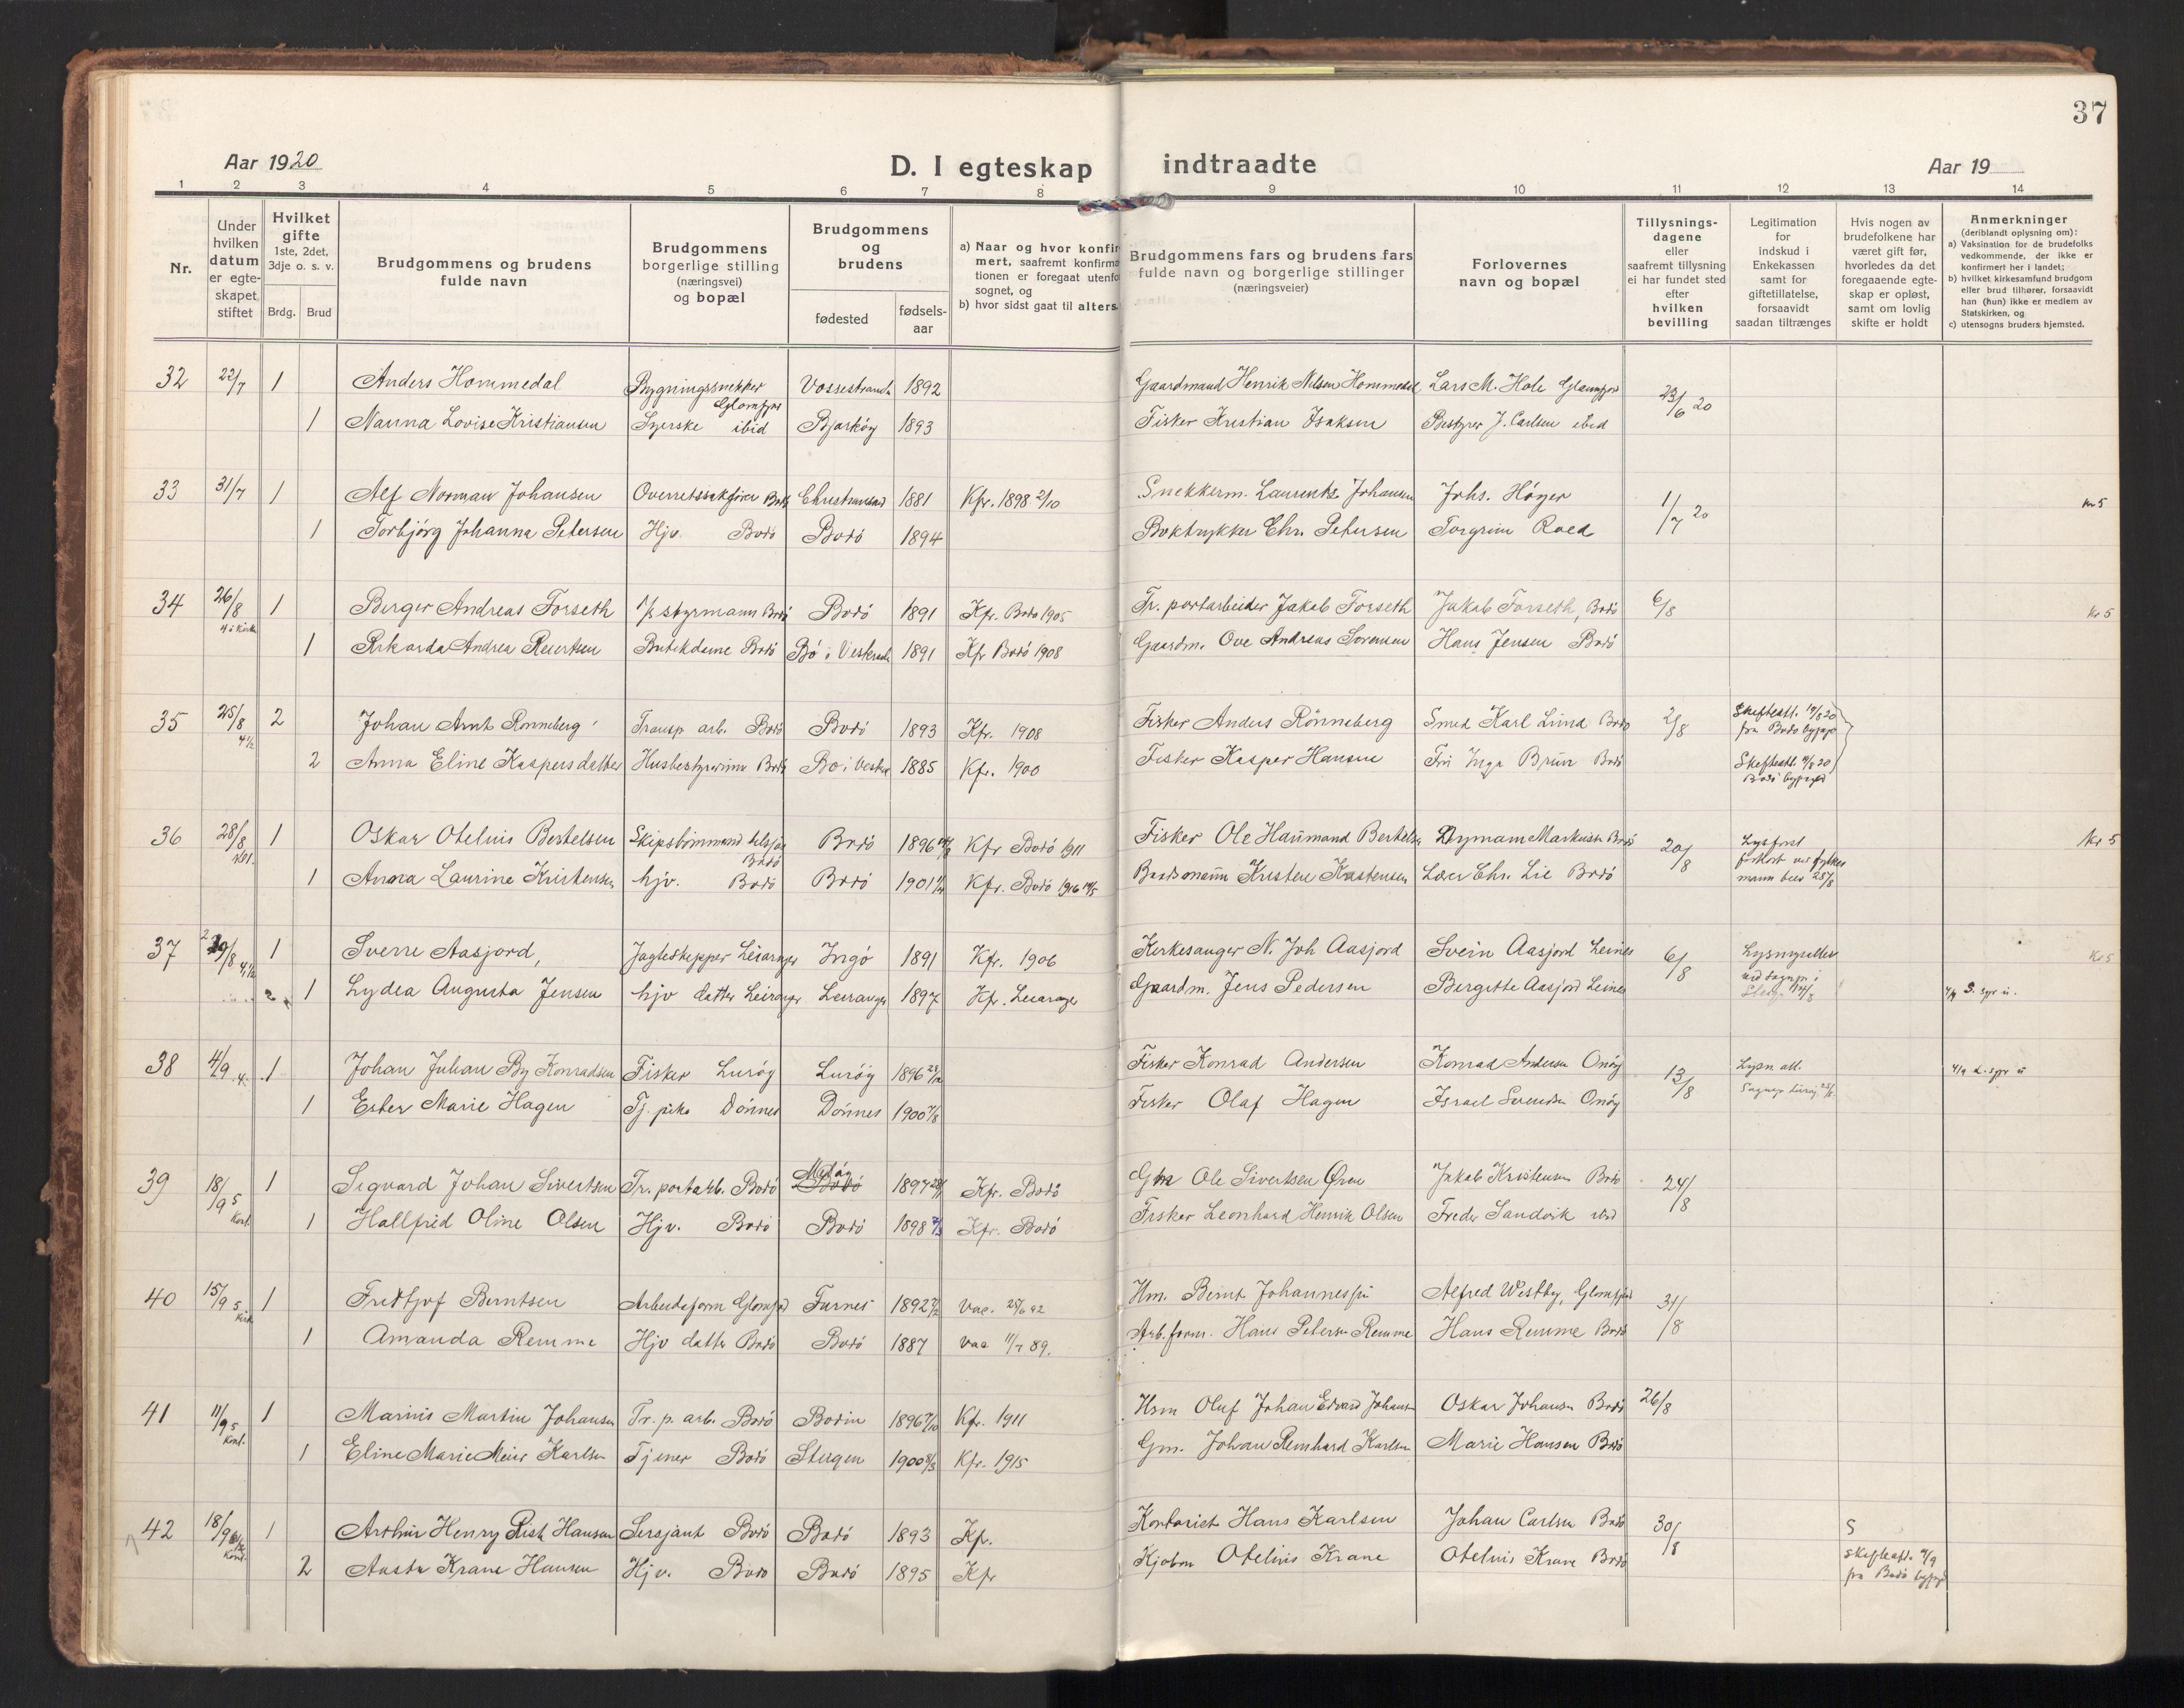 37
Aar 1920
D. I egteskap indtraadte
Aar 19
1 2 3 4 5 6 7 8 9 10 11 12 13 14
Nr.
Under hvilken datum er egteskapet stiftet
Hvilket gifte 1ste, 2det, 3dje o. s. v.
Brdg. Brud
Brudgommens og brudens fulde navn
Brudgommens borgerlige stilling (næringsvei) og bopæl
Brudgommens og brudens
fødested
fødselsaar
a) Naar og hvor konfirmert, saafremt konfirmationen er foregaat utenfo sognet, og
b) hvor sidst gaat til alters.
Brudgommens fars og brudens fars fulde navn og borgerlige stillinger (næringsveier)
Forlovernes navn og bopæl
Tillysningsdagene eller saafremt tillysning ei har fundet sted efter hvilken bevilling
Legitimation for indskud i Enkekassen samt for giftetillatelse, forsaavidt saadan tiltrænges
Hvis nogen av brudefolkene har været gift før, hvorledes da det foregaaende egteskap er opløst, samt om lovlig skifte er holdt
Anmerkninger (deriblandt oplysning om):
a) Vaksination for de brudefolks vedkommende, der ikke er konfirmert her i landet;
b) hvilket kirkesamfund brudgom eller brud tilhører, forsaavidt han (hun) ikke er medlem av Statskirken, og
c) utensogns bruders hjemsted.
32 22/7 1 Anders Hommedal Bygningssnekker Glomfjor Vossestrand 1892 Gaardmand Henrik Nilsen Hommedal Lars M. Hole Glomfjor 23/6 20
1 Nanna Lovise Kristiansen Syerske ibid Bjarköy 1893 Fisker Kristian Isaksen Bestyrer J. Carlsen ibid
33 31/7 1 Alf Norman Johansen Overretssakfører Bodö 1881 Kfr. 1898 2/10 Snekkerm. Laurents Johansen Johs. Höyer 1/7 20 Kr 5
1 Torbjörg Johanna Petersen Hjv. Bodö Bodö 1894 Boktrykker Chr. Petersen Torgrim Roed
34 26/8 1 Berger Andreas Forseth styrmann Bodö Bodö 1891 Kfr. Bodö 1905 Tr. portarbeider Jakob Forseth Jakob Forseth, Bodö 6/8 Kr 5
1 Rikarda Andrea Reiertsen Butikdame Bodö Bö i Vesteraal 1891 Kfr Bodö 1908 Gaardm. Ove Andreas Sorensen Hans Jensen Bodö
35 25/8 4 1/2 2 Johan Arnt Ronneberg Transp. arb. Bodö Bodö 1893 Kfr. 1908 Fisker Anders Rönneberg Smed Karl Lund Bodö 2/8 Skifteatt. fra Bodö byfogd
2 Anna Eline Kaspersdatter Husbestyrerinne Bodö Bö i Vester 1885 Kfr. 1900 Fisker Kasper Hansen Fru Inga Brun Bodö Skifteatt. Bodö byfoged
36 28/8 1 Oskar Oteluis Bertelsen Bodö Bodö 1896 Kfr Bodö 1911 Fisker Ole Haumand Bertels Markussen Bodö 20/8 Kr 5
1 Anna Laurine Kristensen hjv. Bodö Bodö 1901 Kfr. Bodö 1916 Kristen Kristensen Chr. Lie Bodö
37 29/8 4 1/2 1 Sverre Aasjord, Jagteskipper Leiranger Ingö 1891 Kfr. 1906 Kirkesanger N. Joh Aasjord Svein Aasjord Leines 6/8 Kr 5
1 Lydia Augusta Jensen hjv datter Leiranger Leiranger 1897 Kfr. Leiranger Gaardm. Jens Pedersen Bergitte Aasjord Leines
38 4/9 4 1 Johan Julian By Konradsen Fisker Luröy Luröy 1896 Fisker Konrad Andersen Konrad Andersen Onöy 13/8 Lysn. att.
1 Ester Marie Hagen Tj. pike Dönnes Dönnes 1900 Fisker Olaf Hagen Israel Svendsen Onöy
39 18/9 5 Kont. 1 Sigvard Johan Sivertsen Tr. portarb. Bodö Melöy Bodö 1897 Kfr. Bodö Gm Ole Sivertsen Øren Jakob Kristensen Bodö 24/8
1 Hallfrid Oline Olsen Hjv. Bodö Bodö 1898 Kfr. Bodö Fisker Leonhard Henrik Olsen Freder Sandvik ibid
40 15/9 5 Kirk 1 Fridtjof Berntsen Arbeidsform Glomfjord Furnes 1892 Vac. 25/6 92 Hm. Bernt Johannessen Alfred Westby, Glomfjord 31/8
1 Amanda Remme Hjv datter Bodö Bodö 1887 Vac 11/7 89. Arb. form. Hans Petersen Remme Hans Remme Bodö
41 11/9 5 Kont. 1 Marius Martin Johansen Tr. p. arb. Bodö Bodin 1896 Kfr. 1911 Hsm Oluf Johan Edvard Johans Oskar Johansen Bodö 26/8
1 Eline Marie Meier Karlsen Tjener Bodö Steigen 1900 Kfr. 1915 Gm. Johan Reinhard Karlsen Marie Hansen Bodö
42 18/9 Kont. 1 Arthur Henry Rist Hansen Sersjant Bodö Bodö 1893 Kfr. Kontorist Hans Karlsen Johan Carlsen Bodö 30/8 S
2 Aasta Krane Hansen Hjv. Bodö Bodö 1895 Kfr Kjobm Oteluis Krane Oteluis Krane Bodö Skifteatt. fra Bodö byfogd